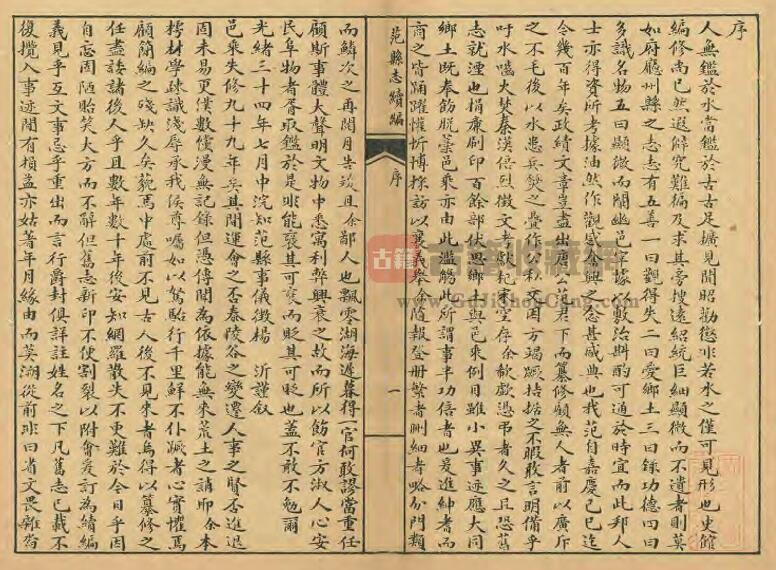 序
人無鑑於水當鑑於古古足擴見聞昭勸懲非若水之僅可見形也史館
編修尚已然遐稽究難徧及求其旁搜遠紹統巨細顯微而不遺者則莫
如府廳州縣之志志有五善一曰觀得失二曰愛鄉土三曰錄功德四曰
多識名物五曰顯微而闡幽邑宰據以敷治斟酌可通於時宜而此邦人
士亦得資所考據油然作觀感奮興之念甚盛典也我范自嘉慶己巳迄
今幾百年矣政績文章豈盡出唐公 君下而纂修顧無人者前以廣斥
之不毛後以水患兵燹之疊作公私交困方竭蹶拮据之不暇敢言明備乎
吁水嚙火焚秦漢倍烈徵文考獻杞宋空存余欷歔憑弔者久之且恐舊
志就湮也捐廉刷印百餘部伏思鄉 與邑乘例目雖小異事迹應大同
鄉土既奉飭脫藁邑乘亦由此濫觴此所謂事半功倍者也爰進紳耆而
商之皆踴躍懽忻博採訪以襄義舉余隨報登冊繁者刪細者略分門類
范縣志續編
序
一
而鱗次之再閱月告竣且余鄙人也飄零湖海遲暮得一官何敢謬當重任
顧斯事體大聲明文物中悉寓利弊興衰之故而所以飭官方淑人心安
民阜物者胥取鑑於是非能褒其可褒而貶其可貶也蓋不敢不勉爾
光緒三十四年七月中浣知范縣事儀徵楊 沂謹叙
邑乘失修九十九年矣其間運會之否泰陵谷之變遷人事之賢否進退
固未易更僕數僅漫無記錄但憑傳聞為依據能無來荒土之誚耶余本
樗材學疎識淺辱承我侯尊囑如以駑駘行千里鮮不仆蹶者心實懼焉
顧簡編之殘缺久矣藐焉中處前不見古人後不見來者烏得以纂修之
任盡諉諸後人乎且數年數十年後安知網羅散失不更難於今日乎因
自忘固陋貽笑大方而不辭但舊志新印不便割裂以附會爰訂為續編
義見乎互文事忌乎重出而言行爵封俱詳註姓名之下凡舊志已載不
復攬入事迹間有損益亦姑著年月緣由而莫溯從前非曰省文畏雜沓
古籍
古籍收藏网
www.GuJiShouCang.Com